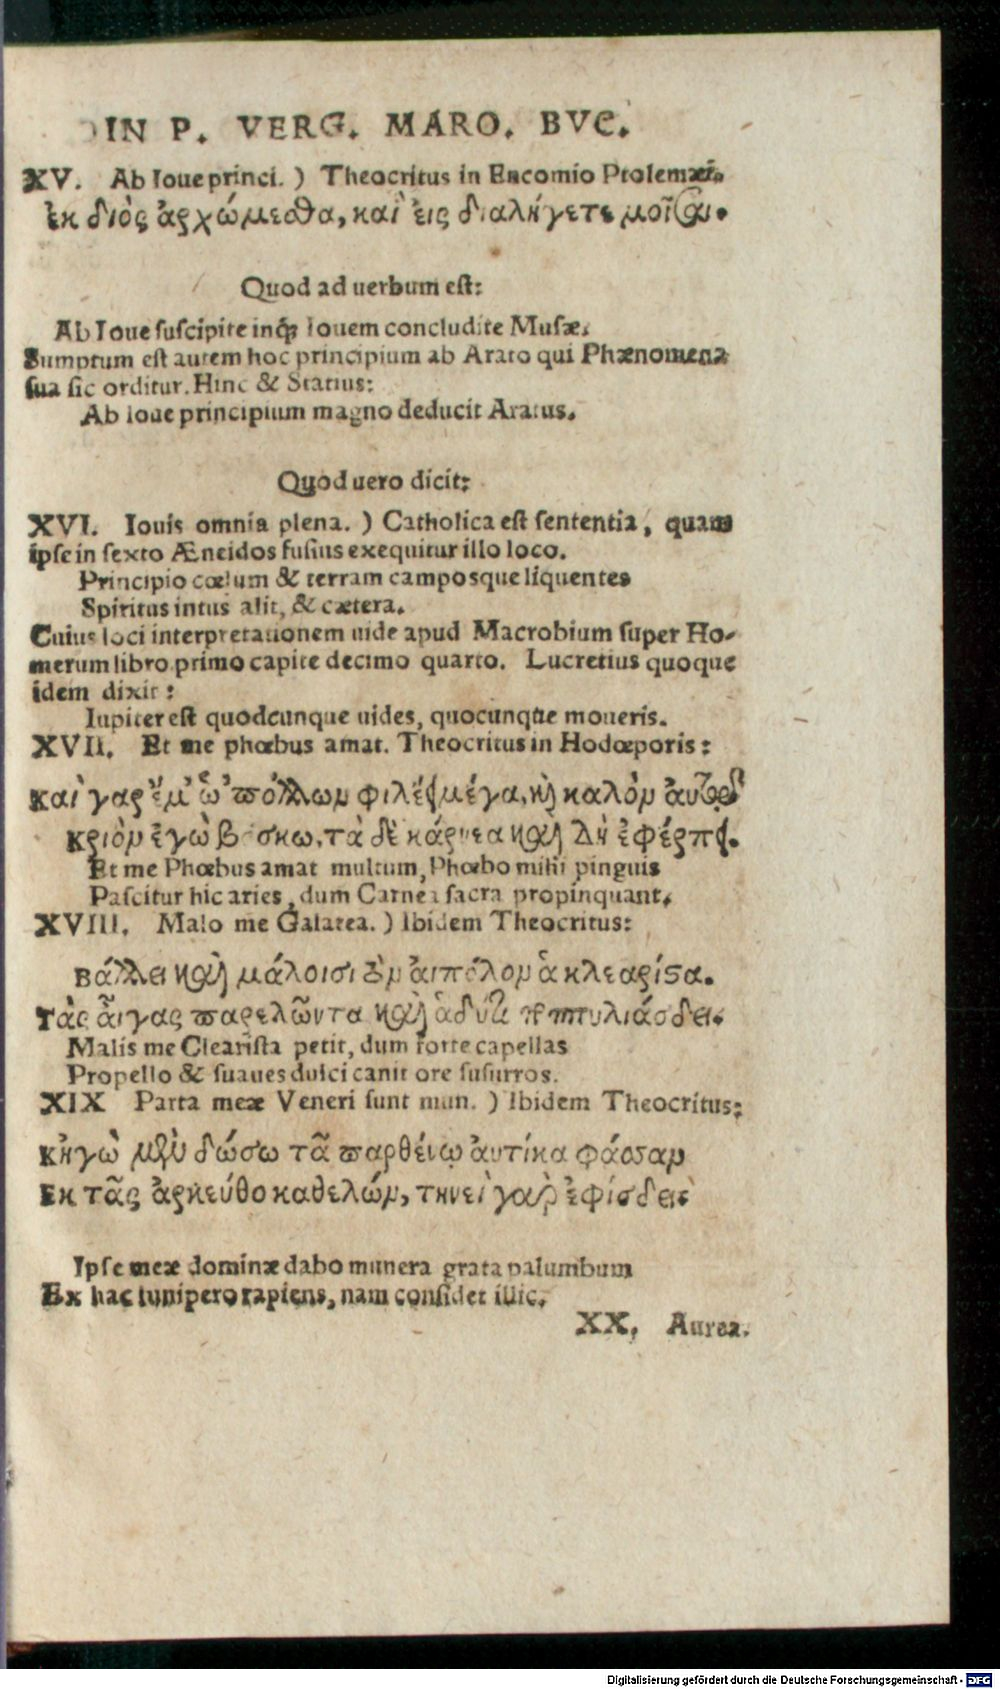 IN P. VERG. MARO. BVC.
XV. Ab Ioue princi. ) Theocritus in Encomio Ptolemæi.
ἐκ διὸς ἀρχώμεσθα, καὶ εἰς δία λήγετε μοῖσαι.
Quod ad uerbum est:
Ab Ioue suscipite inq; Iouem concludite Musæ.
Sumptum est autem hoc principium ab Arato qui Phænomena
sua sic orditur. Hinc & Statius:
Ab Ioue principium magno deducit Aratus.
Quod uero dicit:
XVI. Iouis omnia plena. ) Catholica est sententia, quam
ipse in sexto Æneidos fusius exequitur illo loco.
Principio cœlum & terram camposque liquentes
Spiritus intus alit, & cætera.
Cuius loci interpretationem uide apud Macrobium super Ho-
merum libro primo capite decimo quarto. Lucretius quoque
idem dixit:
Iupiter est quodcunque uides, quocunque moueris.
XVII. Et me phœbus amat. Theocritus in Hodœporis:
καὶ γὰρ ἔμ' ὦ 'πόλλων φιλέει μέγα, καὶ καλὸν αὐτῷ
κριὸν ἐγὼ βόσκω, τὰ δὲ κάρνεα καὶ δὴ ἐφέρπει.
Et me Phœbus amat multum, Phœbo mihi pinguis
Pascitur hic aries, dum Carnea sacra propinquant.
XVIII. Malo me Galatea. ) Ibidem Theocritus:
Βάλλει καὶ μάλοισι τὸν αἰπόλον ἁ κλεαρίστα.
Τὰς αἶγας παρελῶντα καὶ ἁδύ τι ποππυλιάσδει.
Malis me Clearista petit, dum forte capellas
Propello & suaues dulci canit ore susurros.
XIX Parta meæ Veneri sunt mun. ) Ibidem Theocritus:
κἠγὼ μὲν δώσω τᾷ παρθένῳ αὐτίκα φάσσαν
Ἐκ τᾶς ἀρκεύθο καθελών, τηνεὶ γὰρ ἐφίσδει.
Ipse meæ dominæ dabo munera grata palumbum
Ex hac iunipero rapiens, nam considet illic.
XX. Aurea.
Digitalisierung gefördert durch die Deutsche Forschungsgemeinschaft - DFG